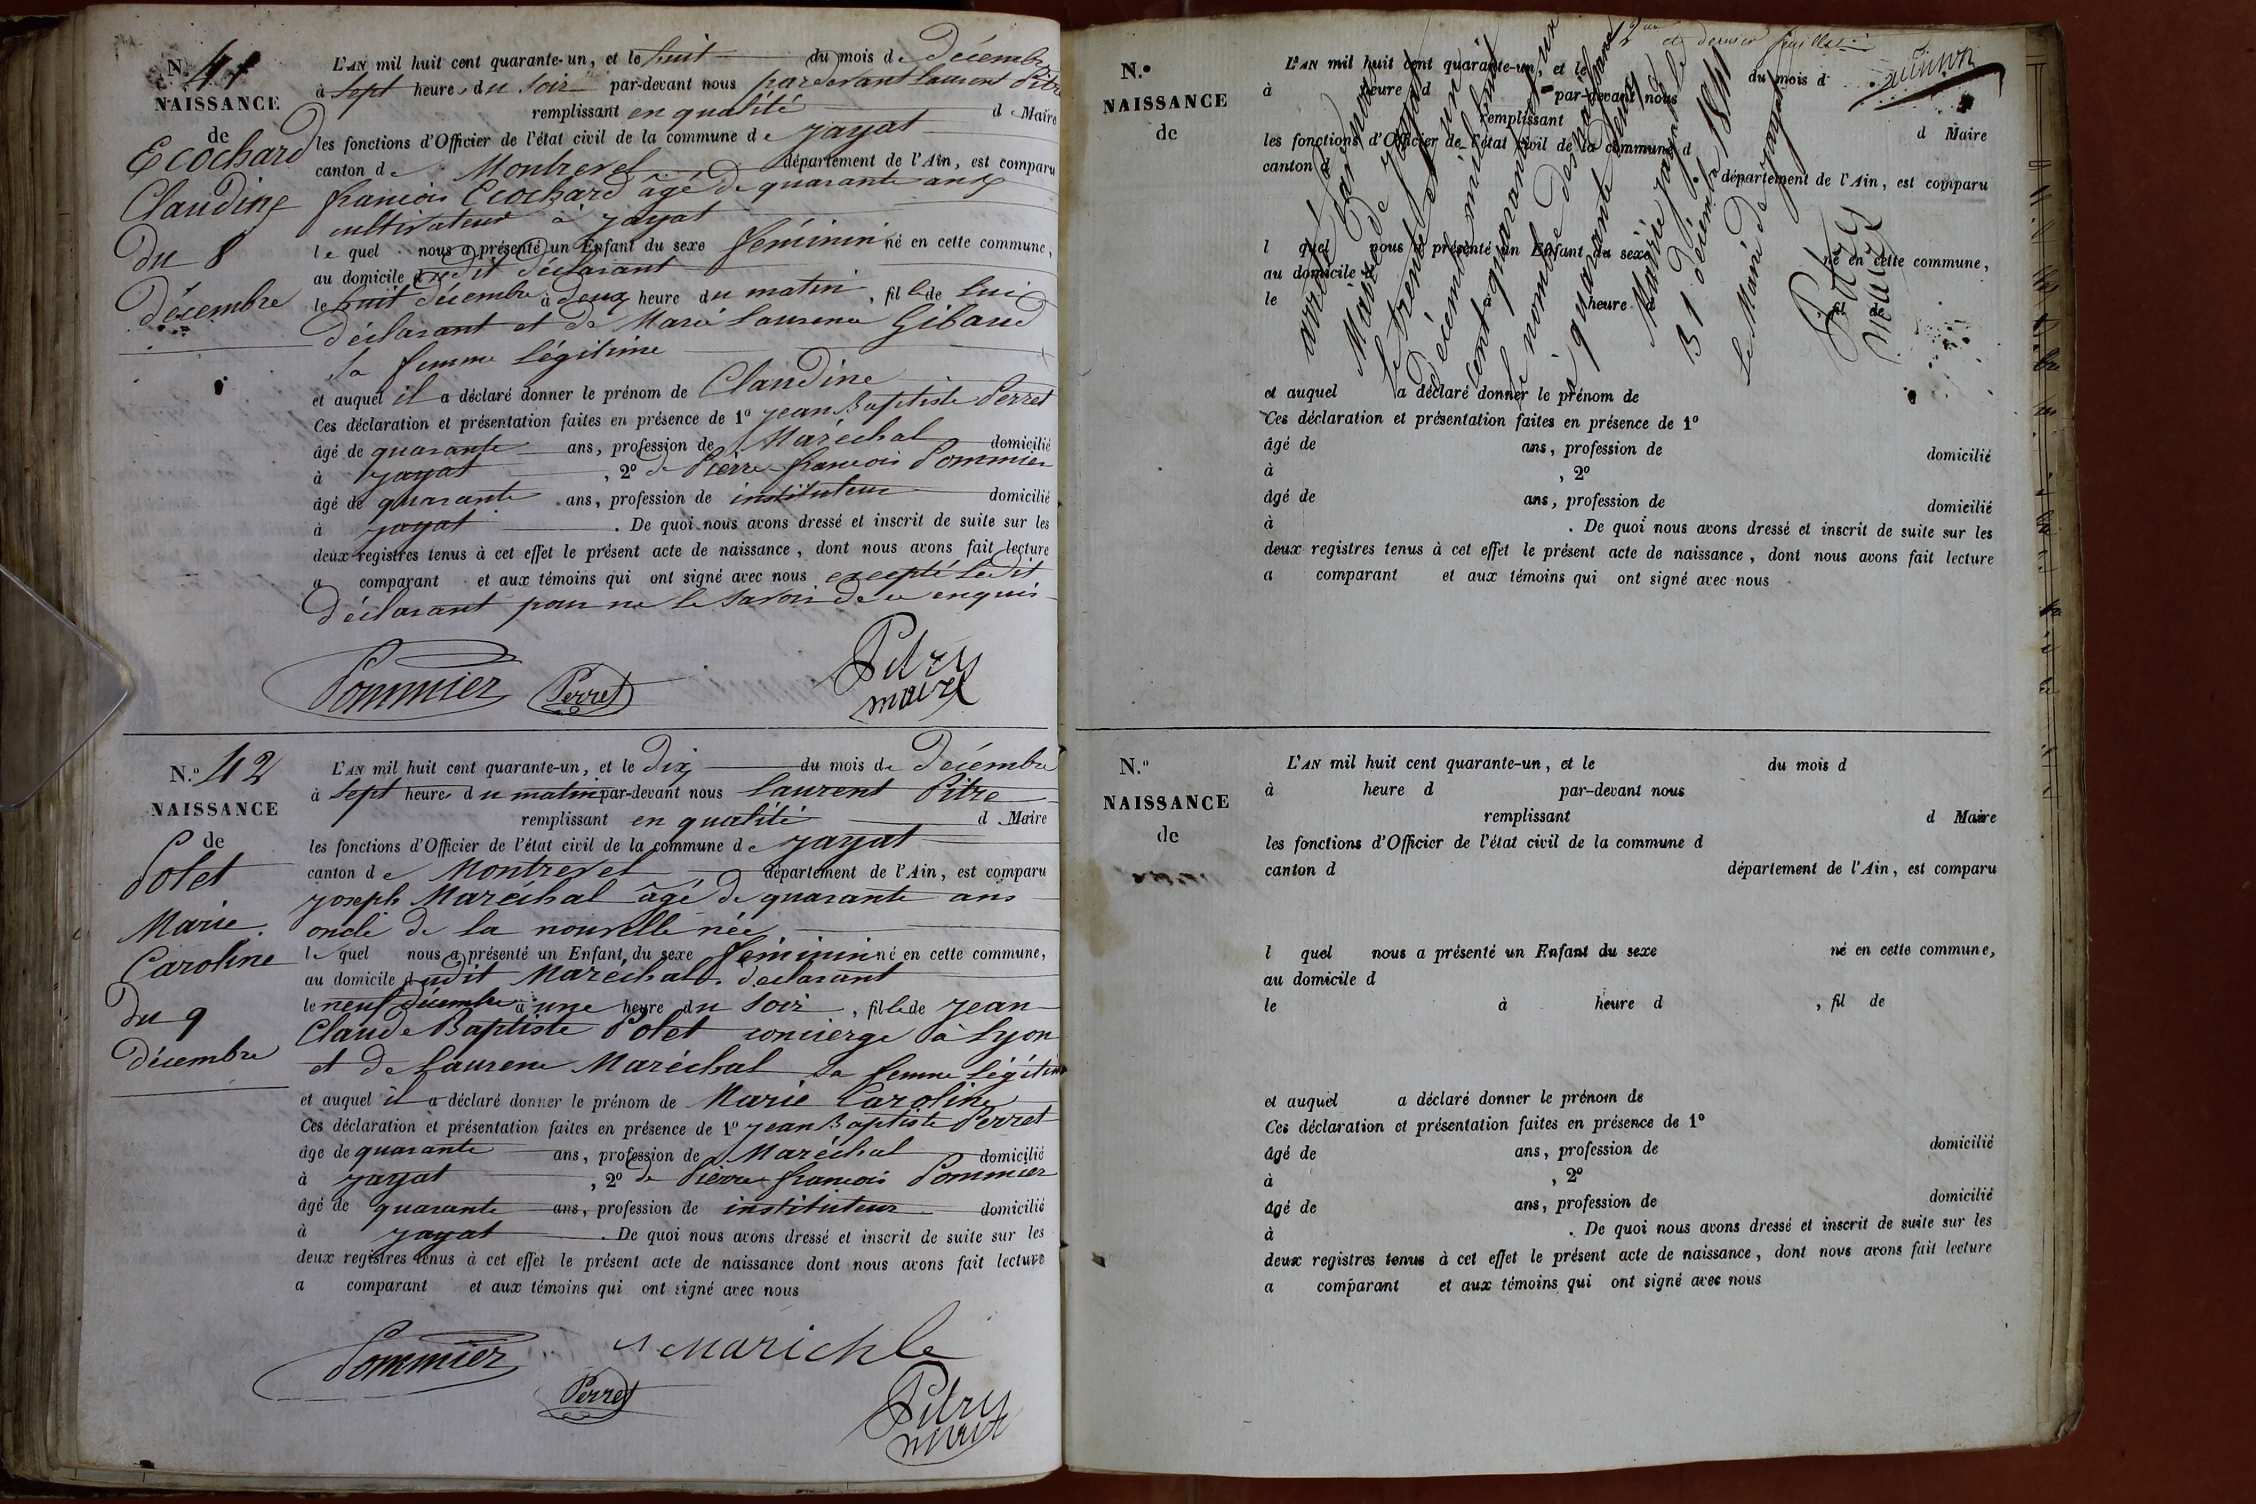 N.º 41
NAISSANCE
de
Ecochard
Claudine
du 8
décembre
L'AN mil huit cent quarante-un, et le huit du mois de Décembre
à sept heures du soir par-devant nous pardevant laurent Pitre
remplissant en qualité d Maire
les fonctions d'Officier de l'état civil de la commune de jayat
canton de Montrevel département de l'Ain, est comparu
francois Ecochard âgé de quarante ans
cultivateur à jayat
le quel nous a présenté un Enfant du sexe féminin né en cette commune,
au domicile dudit déclarant
le huit décembre à deux heure du matin, fille de lui
déclarant et de Marie laurence Gibaud
sa femme légitime
et auquel il a déclaré donner le prénom de Claudine
Ces déclaration et présentation faites en présence de 1º jean Baptiste Perret
âgé de quarante ans, profession de Maréchal domicilié
à jayat, 2º de Pierre francois Pommier
âgé de quarante ans, profession de instituteur domicilié
à jayat. De quoi nous avons dressé et inscrit de suite sur les
deux registres tenus à cet effet le présent acte de naissance, dont nous avons fait lecture
a comparant et aux témoins qui ont signé avec nous excepté ledit
déclarant pour ne le savoir de ce enquis
Pommier Perret Pitre
maire
N.º 42
NAISSANCE
de
Polet
Marie
Caroline
du 9
décembre
L'AN mil huit cent quarante-un, et le dix du mois de Décembre
à sept heures du matin par-devant nous laurent Pitre
remplissant en qualité d Maire
les fonctions d'Officier de l'état civil de la commune de jayat
canton de Montrevel département de l'Ain, est comparu
joseph Maréchal âgé de quarante ans
oncle de la nouvelle née
le quel nous a présenté un Enfant du sexe féminin né en cette commune,
au domicile dudit Maréchal déclarant
le neuf décembre à une heure du soir, fille de jean
Claude Baptiste Polet concierge à Lyon
et de laurence Maréchal sa femme légitime
et auquel il a déclaré donner le prénom de Marie Caroline
Ces déclaration et présentation faites en présence de 1º jean Baptiste Perret
âge de quarante ans, profession de Maréchal domicilié
à jayat, 2º de Pierre francois Pommier
âgé de quarante ans, profession de instituteur domicilié
à jayat. De quoi nous avons dressé et inscrit de suite sur les
deux registres tenus à cet effet le présent acte de naissance dont nous avons fait lecture
a comparant et aux témoins qui ont signé avec nous
Pommier Marichle
Perret Pitre
maire
et dernier feuillet
N.º
NAISSANCE
de
L'AN mil huit cent quarante-un, et le du mois d
à heure d par-devant nous
remplissant d Maire
les fonctions d'Officier de l'état civil de la commune d
canton d département de l'Ain, est comparu
l quel nous a présenté un Enfant du sexe né en cette commune,
au domicile d
le à heure d, fil de
arrêté par nous
Maire de jayat
le trente et un
décembre mil huit
cent quarante un
le nombre des naissances
à quarante deux
Mairie jayat le
31 décembre 1841
le Maire de jayat
Pitre
maire
et auquel a déclaré donner le prénom de
Ces déclaration et présentation faites en présence de 1º
âgé de ans, profession de domicilié
à , 2º
âgé de ans, profession de domicilié
à . De quoi nous avons dressé et inscrit de suite sur les
deux registres tenus à cet effet le présent acte de naissance, dont nous avons fait lecture
a comparant et aux témoins qui ont signé avec nous
N.º
NAISSANCE
de
L'AN mil huit cent quarante-un, et le du mois d
à heure d par-devant nous
remplissant d Maire
les fonctions d'Officier de l'état civil de la commune d
canton d département de l'Ain, est comparu
l quel nous a présenté un Enfant du sexe né en cette commune,
au domicile d
le à heure d , fil de
et auquel a déclaré donner le prénom de
Ces déclaration et présentation faites en présence de 1º
âgé de ans, profession de domicilié
à , 2º
âgé de ans, profession de domicilié
à . De quoi nous avons dressé et inscrit de suite sur les
deux registres tenus à cet effet le présent acte de naissance, dont nous avons fait lecture
a comparant et aux témoins qui ont signé avec nous